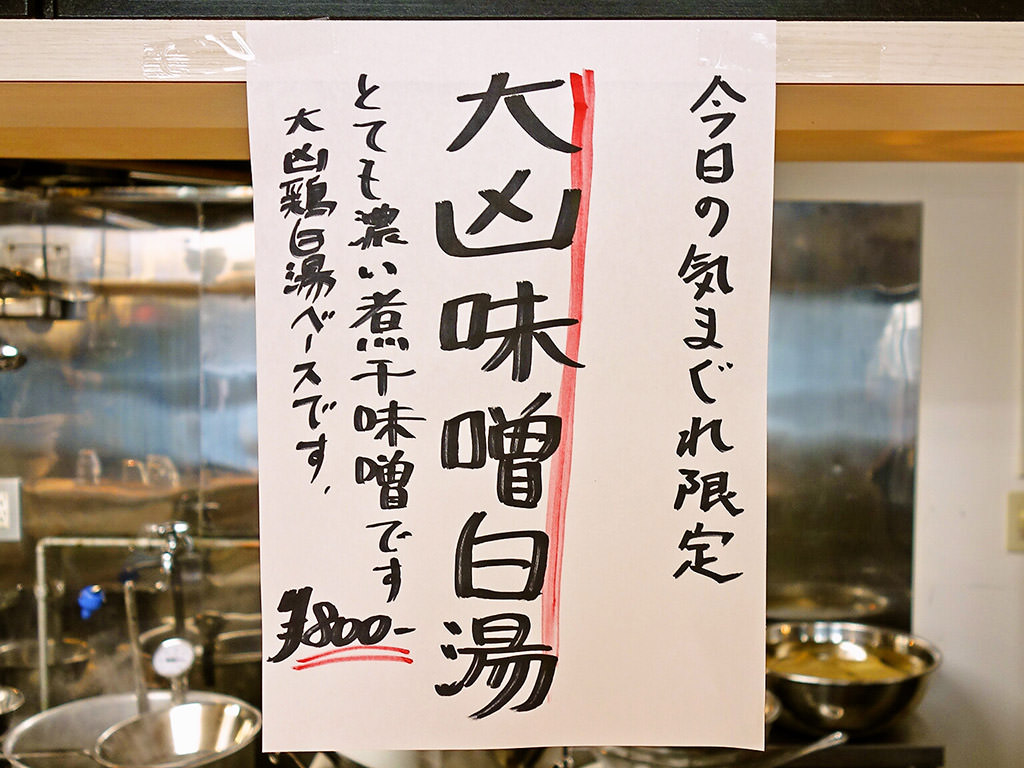 今日の気まぐれ限定
大凶味噌白湯
とても濃い煮干味噌です
大凶鶏白湯ベースです.
¥800-